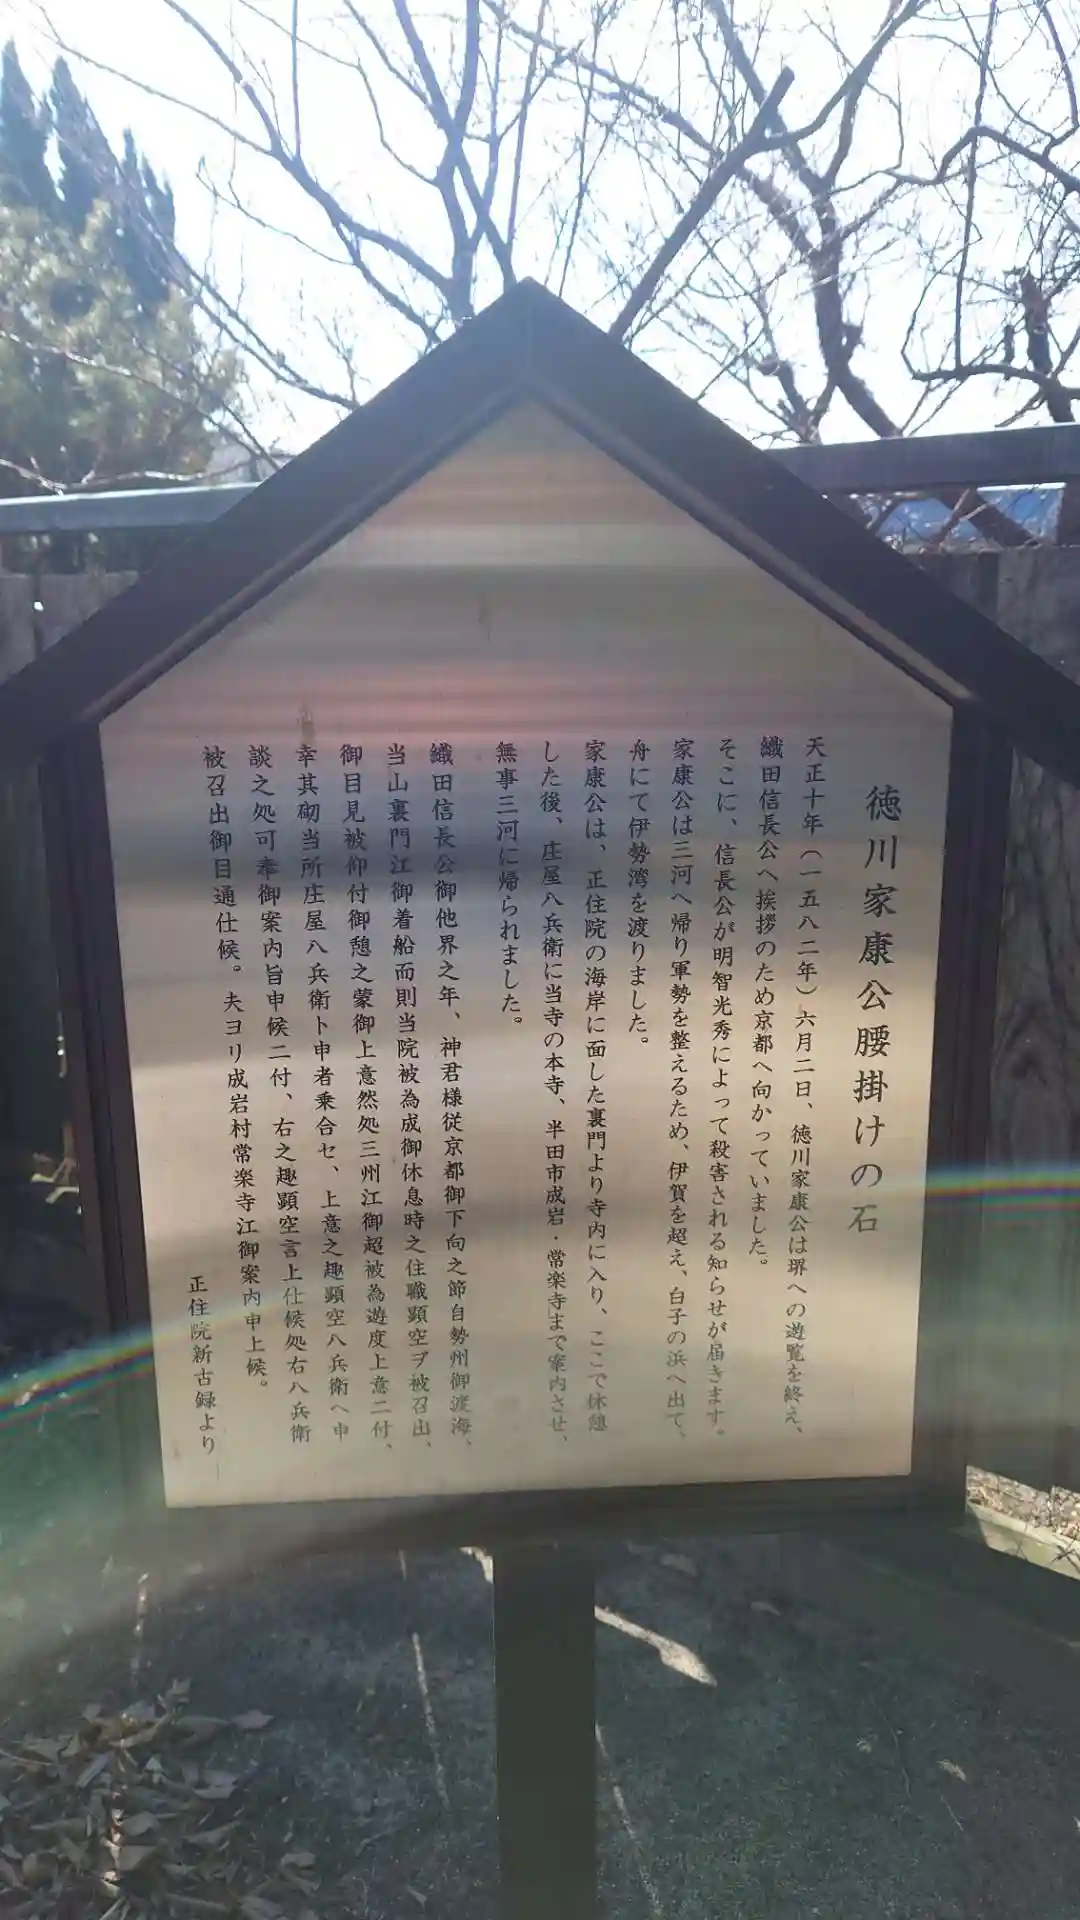 徳川家康公腰掛けの石
天正十年(一五八二年)六月二日、徳川家康公は堺への遊覧を終え、
織田信長公へ挨拶のため京都へ向かっていました。
そこに、信長公が明智光秀によって殺害される知らせが届きます。
家康公は三河へ帰り軍勢を整えるため、伊賀を超え、白子の浜へ出て、
舟にて伊勢湾を渡りました。
家康公は、正住院の海岸に面した裏門より寺内に入り、ここで休憩
した後、庄屋八兵衛に当寺の本寺、半田市成岩・常楽寺まで案内させ、
無事三河に帰られました。
織田信長公御他界之年、神君様従京都御下向之節自勢州御渡海、
当山裏門江御着船而則当院被為成御休息時之住職顕空ヲ被召出、
御目見被仰付御憩之蒙御上意然処三州江御超被為遊度上意二付、
幸其砌当所庄屋八兵衛ト申者乗合セ、上意之趣顕空八兵衛へ申
談之処可奉御案内旨申候二付、右之趣顕空言上仕候処右八兵衛
被召出御目通仕候。夫ヨリ成岩村常楽寺江御案内申上候。
正住院新古録より